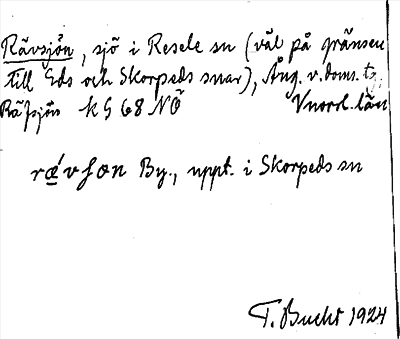 Rävsjön, sjö i Resele sn (väl på gränsen
till Eds och Skorpeds snar), Ång. v. doms. tg.
Räfsjön KG 68 NÖ Vnorrl. län
rǽvʃon By., uppt. i Skorpeds sn
T. Bucht 1924